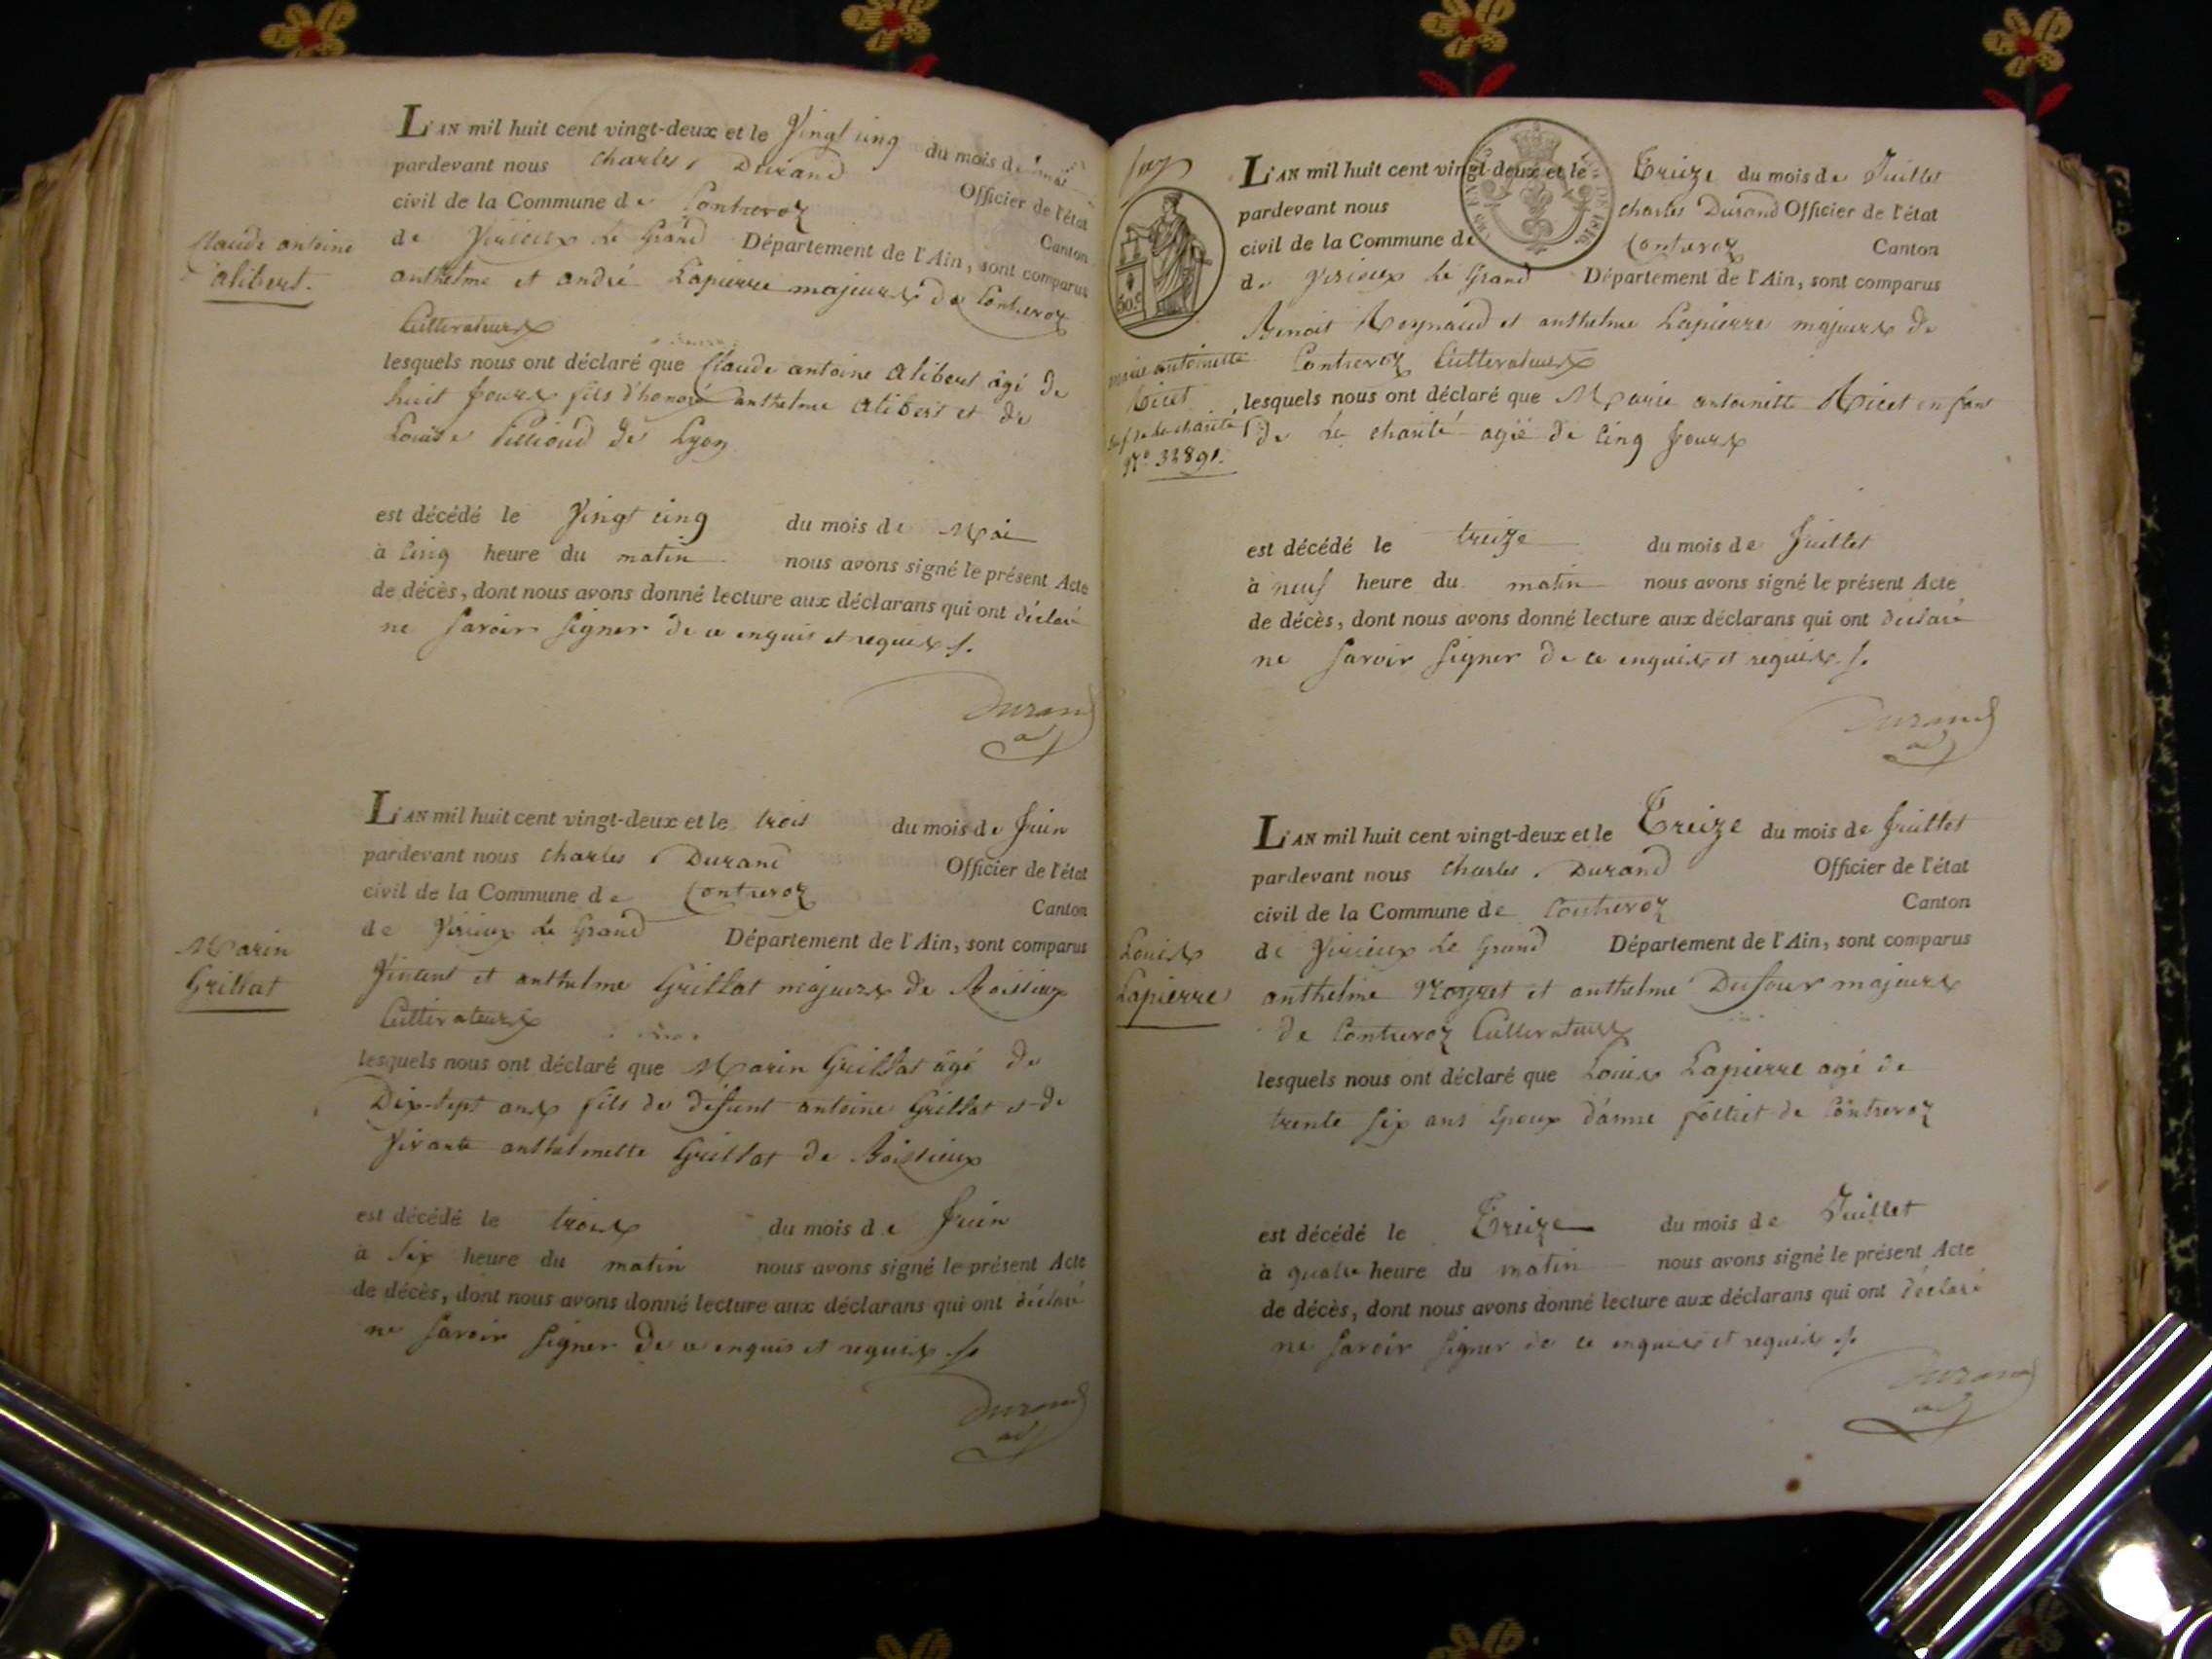 L'AN mil huit cent vingt-deux et le Vingt cinq du mois de mai
pardevant nous Charles Durand Officier de l'état
civil de la Commune de Contrevoz Canton
de Virieux le Grand Département de l'Ain, sont comparus
Claude antoine
alibert.
anthelme et andré Lapierre majeurs de Contrevoz
Cultivateurs
lesquels nous ont déclaré que Claude antoine alibert âgé de
huit jours fils d'honoré anthelme alibert et de
Louise de Lyon
est décédé le Vingt cinq du mois de Mai
à Cinq heure du matin nous avons signé le présent Acte
de décès, dont nous avons donné lecture aux déclarans qui ont déclaré
ne savoir signer de ce enquis et requis
Durand
L'AN mil huit cent vingt-deux et le trois du mois de Juin
pardevant nous Charles Durand Officier de l'état
civil de la Commune de Contrevoz Canton
de Virieux le Grand Département de l'Ain, sont comparus
Marin
Grillat
Vincent et anthelme Grillat majeurs de Boissieux
Cultivateurs
lesquels nous ont déclaré que Marin Grillat âgé de
Dix-sept ans fils de défunt antoine Grillat et de
Vivante anthelmette Grillat de Boissieux
est décédé le trois du mois de Juin
à Six heure du matin nous avons signé le présent Acte
de décès, dont nous avons donné lecture aux déclarans qui ont déclaré
ne savoir signer de ce enquis et requis
Durand
L'AN mil huit cent vingt-deux et le Treize du mois de Juillet
pardevant nous Charles Durand Officier de l'état
civil de la Commune de Contrevoz Canton
de Virieux le Grand Département de l'Ain, sont comparus
50.c
DE 1816.
Benoit Reynaud et anthelme Lapierre majeurs de
Contrevoz Cultivateurs
marie antoinette
Ricet
de la charité
N.o 32891.
lesquels nous ont déclaré que Marie antoinette Ricet enfant
de la charité agié de Cinq jours
est décédé le treize du mois de Juillet
à neuf heure du matin nous avons signé le présent Acte
de décès, dont nous avons donné lecture aux déclarans qui ont déclaré
ne savoir signer de ce enquis et requis
Durand
L'AN mil huit cent vingt-deux et le Treize du mois de Juillet
pardevant nous Charles Durand Officier de l'état
civil de la Commune de Contrevoz Canton
de Virieux le Grand Département de l'Ain, sont comparus
Louis
Lapierre
anthelme et anthelme Dufour majeurs
de Contrevoz Cultivateurs
lesquels nous ont déclaré que Louis Lapierre agé de
trente six ans Epoux d'anne de Contrevoz
est décédé le Treize du mois de Juillet
à quatre heure du matin nous avons signé le présent Acte
de décès, dont nous avons donné lecture aux déclarans qui ont déclaré
ne savoir signer de ce enquis et requis
Durand